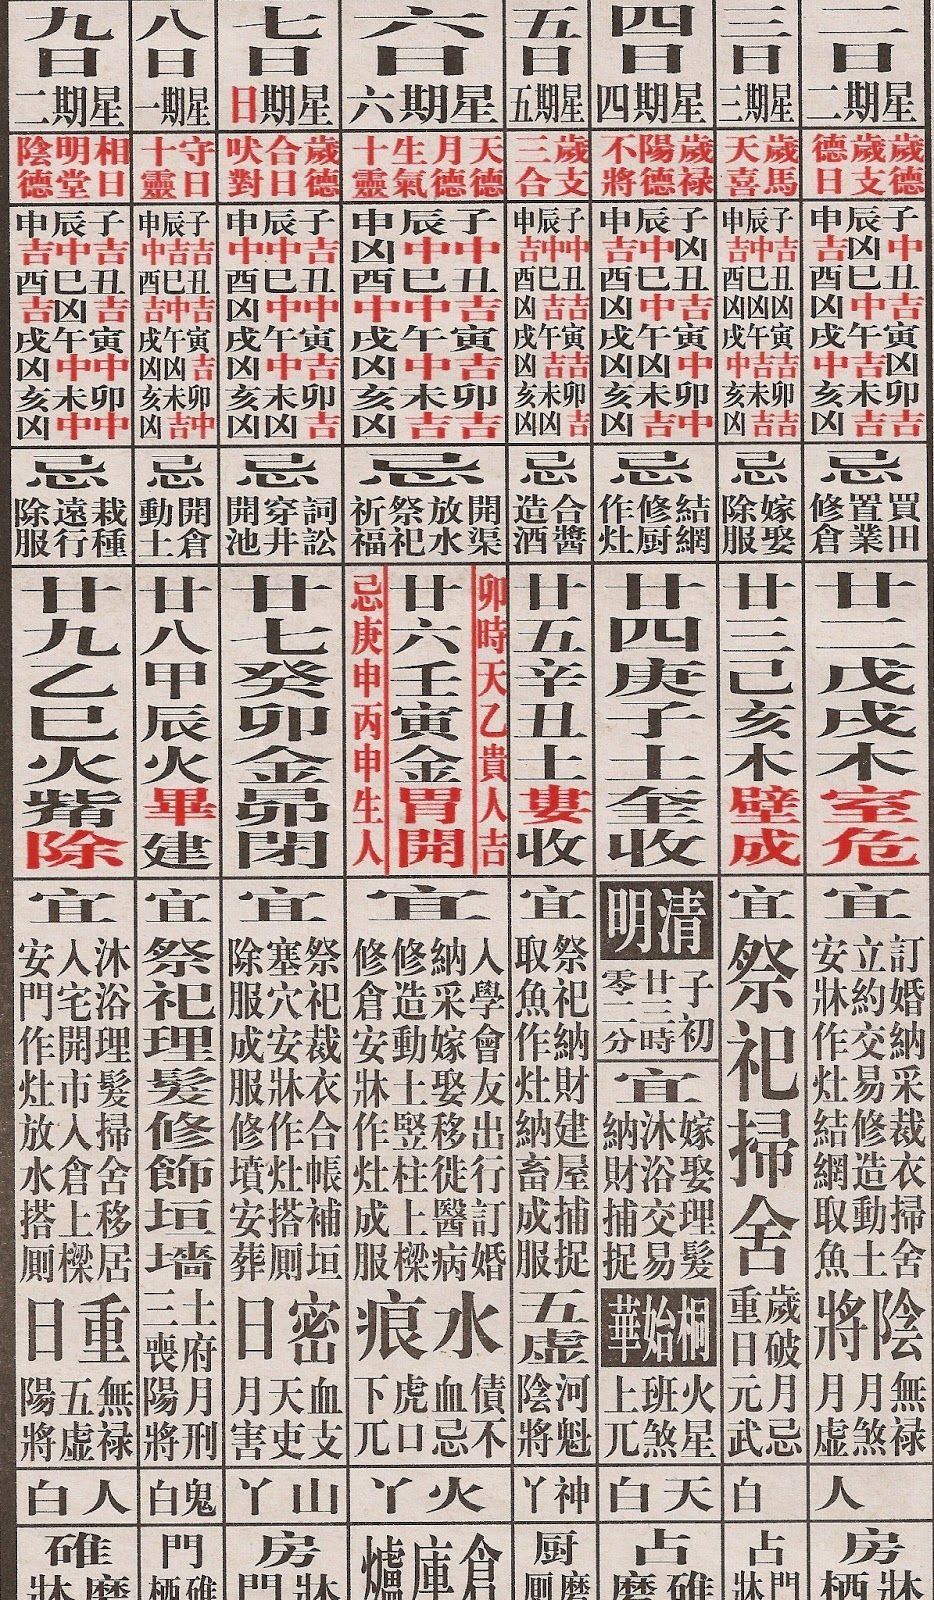 二日
星期二
歲德
歲支
德日
子辰申
中凶吉
丑巳酉
吉中凶
寅午戌
凶吉中
卯未亥
吉吉凶
忌
買田
置業
修倉
廿二戊戌木室危
宜
訂婚納采裁衣掃舍
立約交易修造動土
安牀作灶結網取魚
陰將
無祿
月煞
月虛
人
房
牀栖
三日
星期三
歲馬
天喜
子辰申
吉中吉
丑巳酉
凶凶凶
寅午戌
吉吉中
卯未亥
吉吉凶
忌
嫁娶
除服
廿三己亥木壁成
宜
祭祀掃舍
歲破
重日
月忌
元武
白
占
門牀
四日
星期四
歲祿
陽德
不將
子辰申
凶中吉
丑巳酉
吉中凶
寅午戌
中凶凶
卯未亥
中吉凶
忌
結網
修厨
作灶
廿四庚子土奎收
清明
子初
廿三時
零二分
宜
嫁娶理髮
沐浴交易
納財捕捉
桐始華
火星
班煞
上兀
天白
占
碓磨
五日
星期五
歲支
三合
子辰申
中中吉
丑巳酉
吉吉凶
寅午戌
吉吉凶
卯未亥
吉凶凶
忌
合醬
造酒
廿五辛丑土婁收
宜
祭祀納財建屋捕捉
取魚作灶納畜成服
五虛
河魁
陰將
神丫
厨
磨厠
六日
星期六
天德
月德
生氣
十靈
子辰申
中中凶
丑巳酉
吉中中
寅午戌
吉中凶
卯未亥
吉吉凶
忌
開渠
放水
祭祀
祈福
卯時天乙貴人吉
廿六壬寅金胃開
忌庚申丙申生人
宜
入學會友出行訂婚
納采嫁娶移徙醫病
修造動土竪柱上樑
修倉安牀作灶成服
水痕
債不
血忌
虎口
下兀
火丫
倉庫爐
七日
星期日
歲德
合日
吠對
子辰申
吉中中
丑巳酉
中中凶
寅午戌
吉中凶
卯未亥
吉凶凶
忌
詞訟
穿井
開池
廿七癸卯金昴閉
宜
祭祀裁衣合帳補垣
塞穴安牀作灶搭厠
除服成服修墳安葬
密日
血支
天吏
月害
山丫
房
牀門
八日
星期一
守日
十靈
子辰申
吉吉中
丑巳酉
吉中吉
寅午戌
吉凶凶
卯未亥
中吉凶
忌
開倉
動土
廿八甲辰火畢建
宜
祭祀理髮修飾垣墻
土府
三喪
月刑
陽將
鬼白
門
碓栖
九日
星期二
相日
明堂
陰德
子辰申
吉中吉
丑巳酉
吉凶吉
寅午戌
中中凶
卯未亥
中中凶
忌
栽種
遠行
除服
廿九乙巳火觜除
宜
沐浴理髮掃舍移居
入宅開市入倉上樑
安門作灶放水搭厠
重日
無祿
五虛
陽將
人白
碓
磨牀